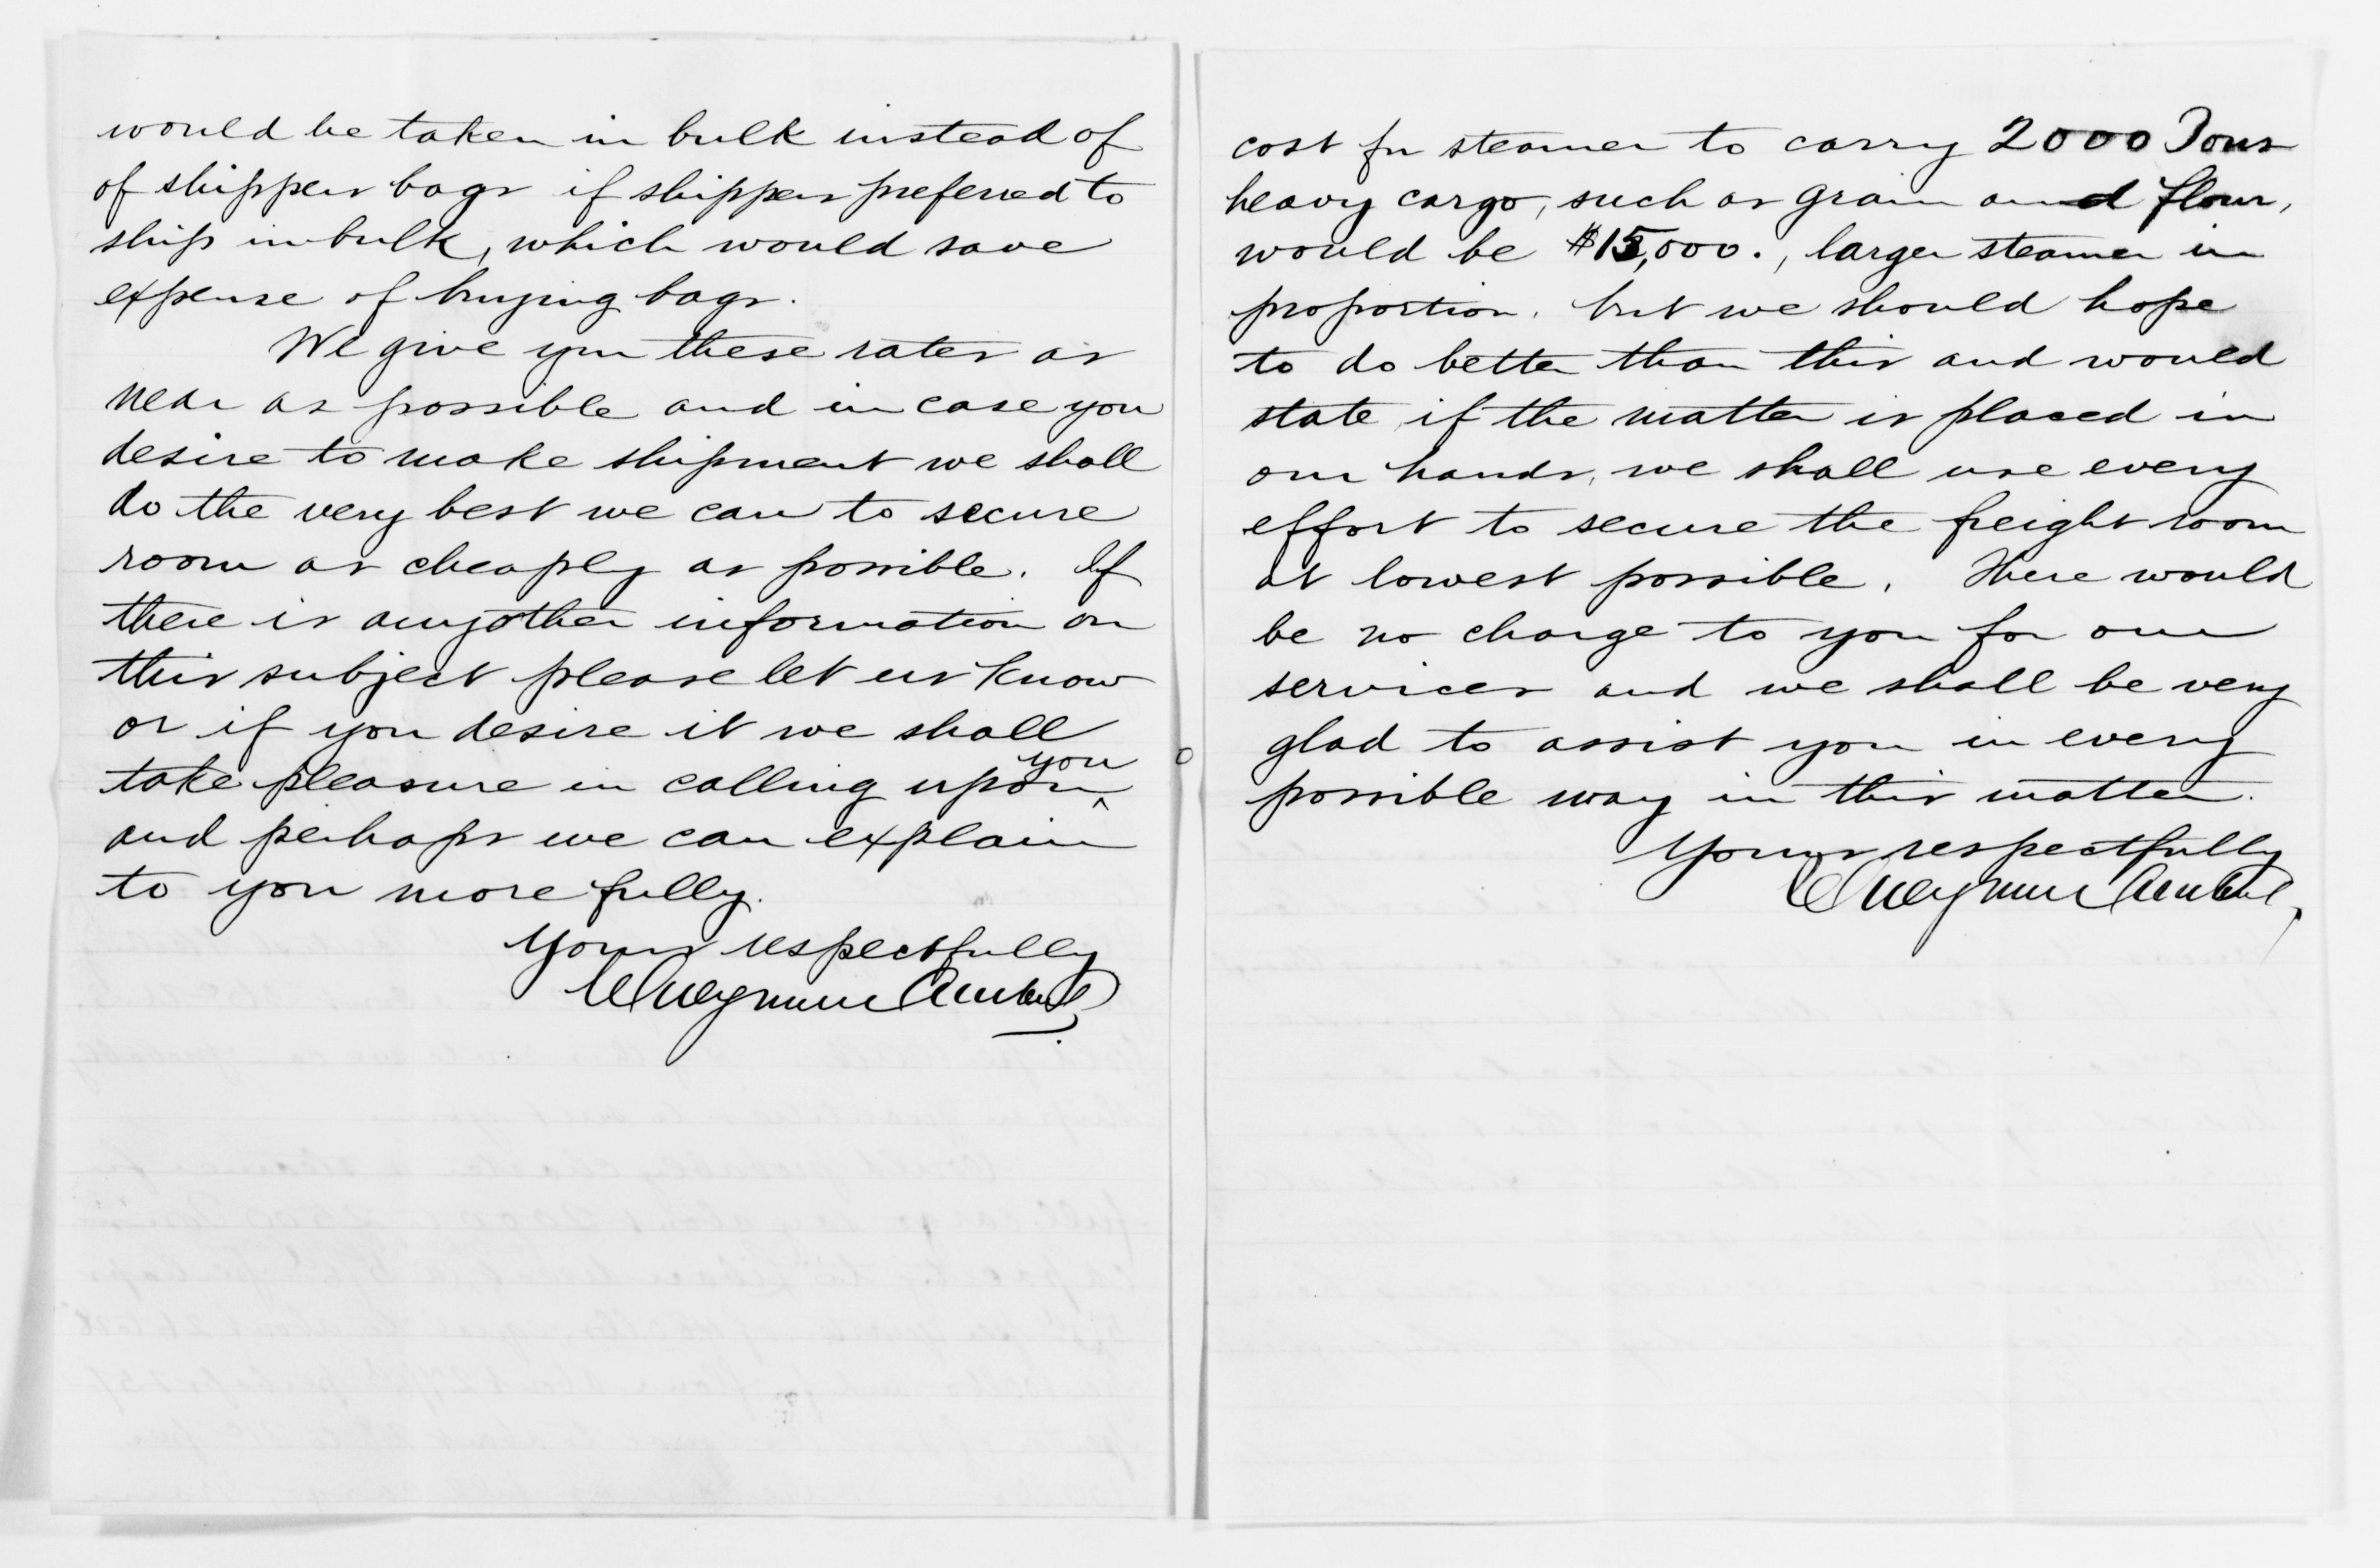 would be taken in bulk instead of
of shippers bags if shippers preferred to
ship in bulk, which would save
expense of buying bags.
We give you these rates as
near as possible and in case you
desire to make shipment we shall
do the very best we can to secure
room as cheaply as possible. If
there is any other information on
this subject please let us know
or if you desire it we shall
take pleasure in calling upon you
and perhaps we can explain
to you more fully.
Yours respectfully
cost for steamer to carry 2000 Tons
heavy cargo, such as grain and flour,
would be $15,000., larger steamer in
proportion. but we should hope
to do better than this and would
state if the matter is placed in
our hands, we shall use every
effort to secure the freight room
at lowest possible. There would
be no charge to you for our
services and we shall be very
glad to assist you in every
possible way in this matter.
Yours respectfully